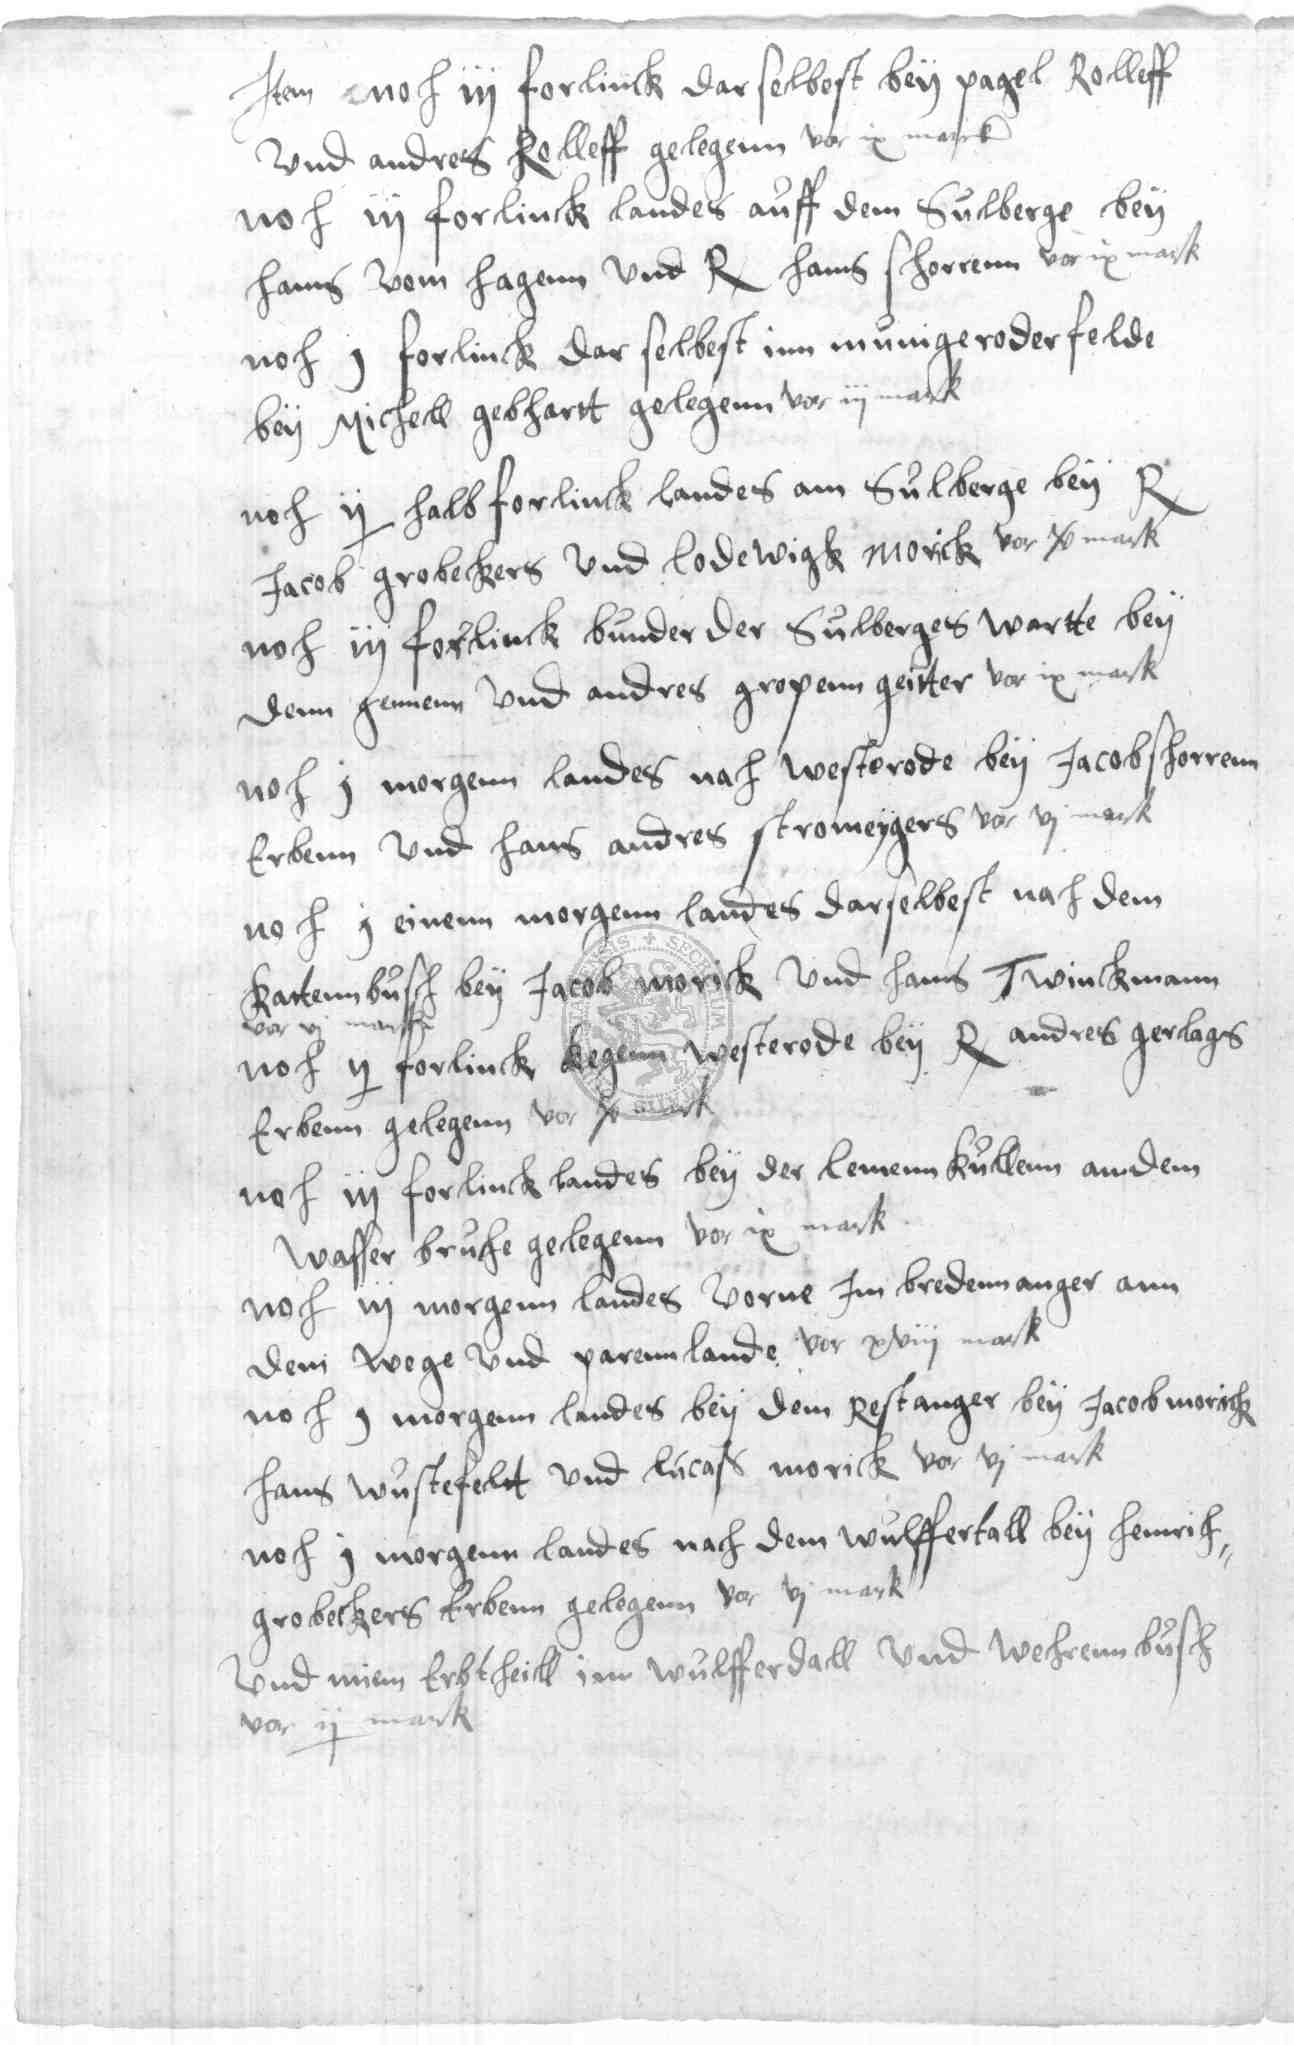 Item noch iij forlinck dar selbest beÿ pagel Rolleff
Vnd andres Rolleff gelegenn vor ix marck
noch iij forlinck landes auff dem Sulberge beÿ
hans vom hagenn Vnd R hans schorrenn vor ix mark
noch j forlinck dar selbest inn munigeroder felde
beÿ Michell gebhartt gelegenn vor iij mark
noch ij halb forlinck landes am Sulberge beÿ R
Jacob grobeckers Vnd lodewigk morick vor mark
noch iij forlinck bunder der Sulberges wartte beÿ
denn Vnd andres gropenn geitter vor ix mark
noch j morgenn landes nach westerode beÿ Jacob schorrenn
Erbenn Vnd hans andres stromeÿgers vor vj mark
noch j einenn morgenn landes darselbest nach dem
kattennbusch beÿ Jacob morick Vnd hans Twinckmann
vor vj marck
noch ij forlinck kegenn westerode beÿ R andres gerlags
Erbenn gelegenn vor mark
noch iij forlinck landes beÿ der lemenn kullenn an dem
wasser bruche gelegenn vor ix mark
noch iij morgenn landes vorne Im bredenn anger ann
dem wege Vnd parenn lande vor xviij mark
noch j morgenn landes beÿ dem Restanger beÿ Jacob morick
hans wustefeltt Vnd lucass morick vor vj mark
noch j morgenn landes nach dem wulffertall beÿ henrich
grobeckers Erbenn gelegenn vor vj mark
Vnd mein Erbtheill im wulfferdall Vnd wehrennbusch
vor ij mark